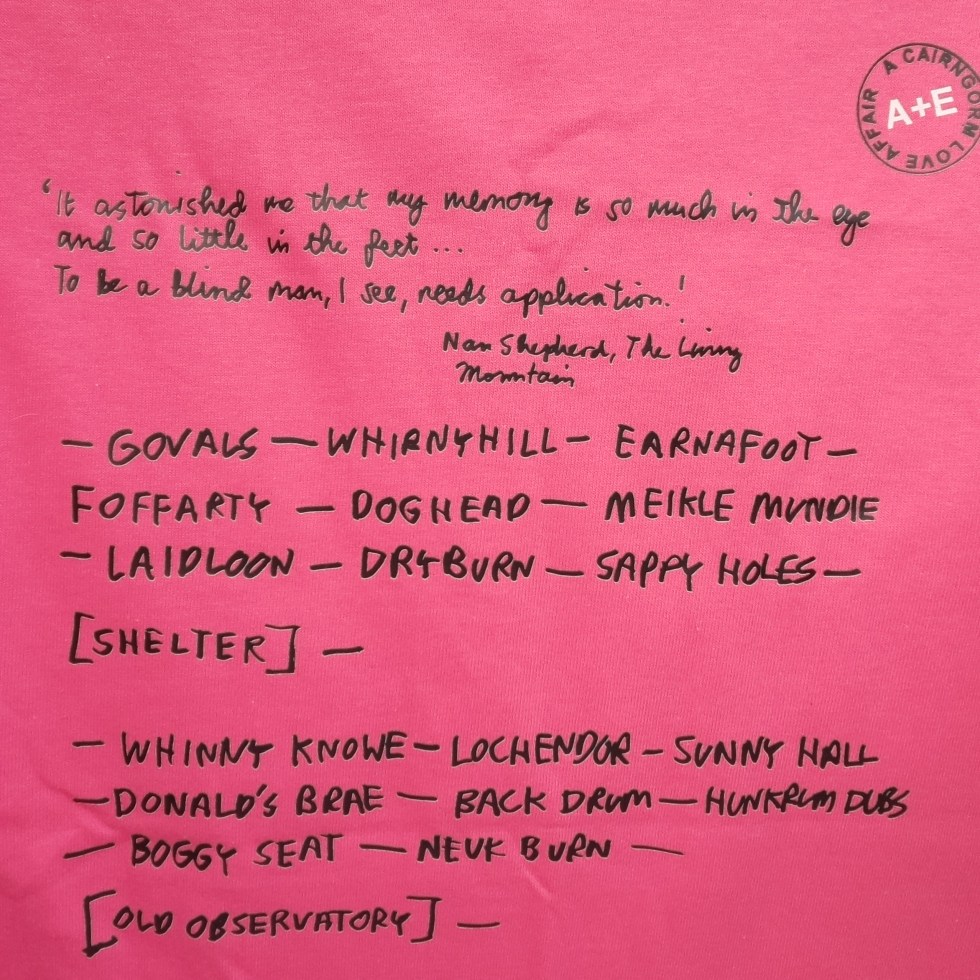 A CAIRNGORM LOVE AFFAIR
A+E
'It astonished me that my memory is so much in the eye
and so little in the feet ...
To be a blind man, I see, needs application.'
Nan Shepherd, The Living
Mountain
— GOVALS — WHIRNYHILL — EARNAFOOT —
FOFFARTY — DOGHEAD — MEIKLE MUNDIE
— LAIDLOON — DRYBURN — SAPPY HOLES —
[SHELTER] —
— WHINNY KNOWE — LOCHENDOR — SUNNY HALL
— DONALD'S BRAE — BACK DRUM — HUNKRUM DUBS
— BOGGY SEAT — NEUK BURN —
[OLD OBSERVATORY] —